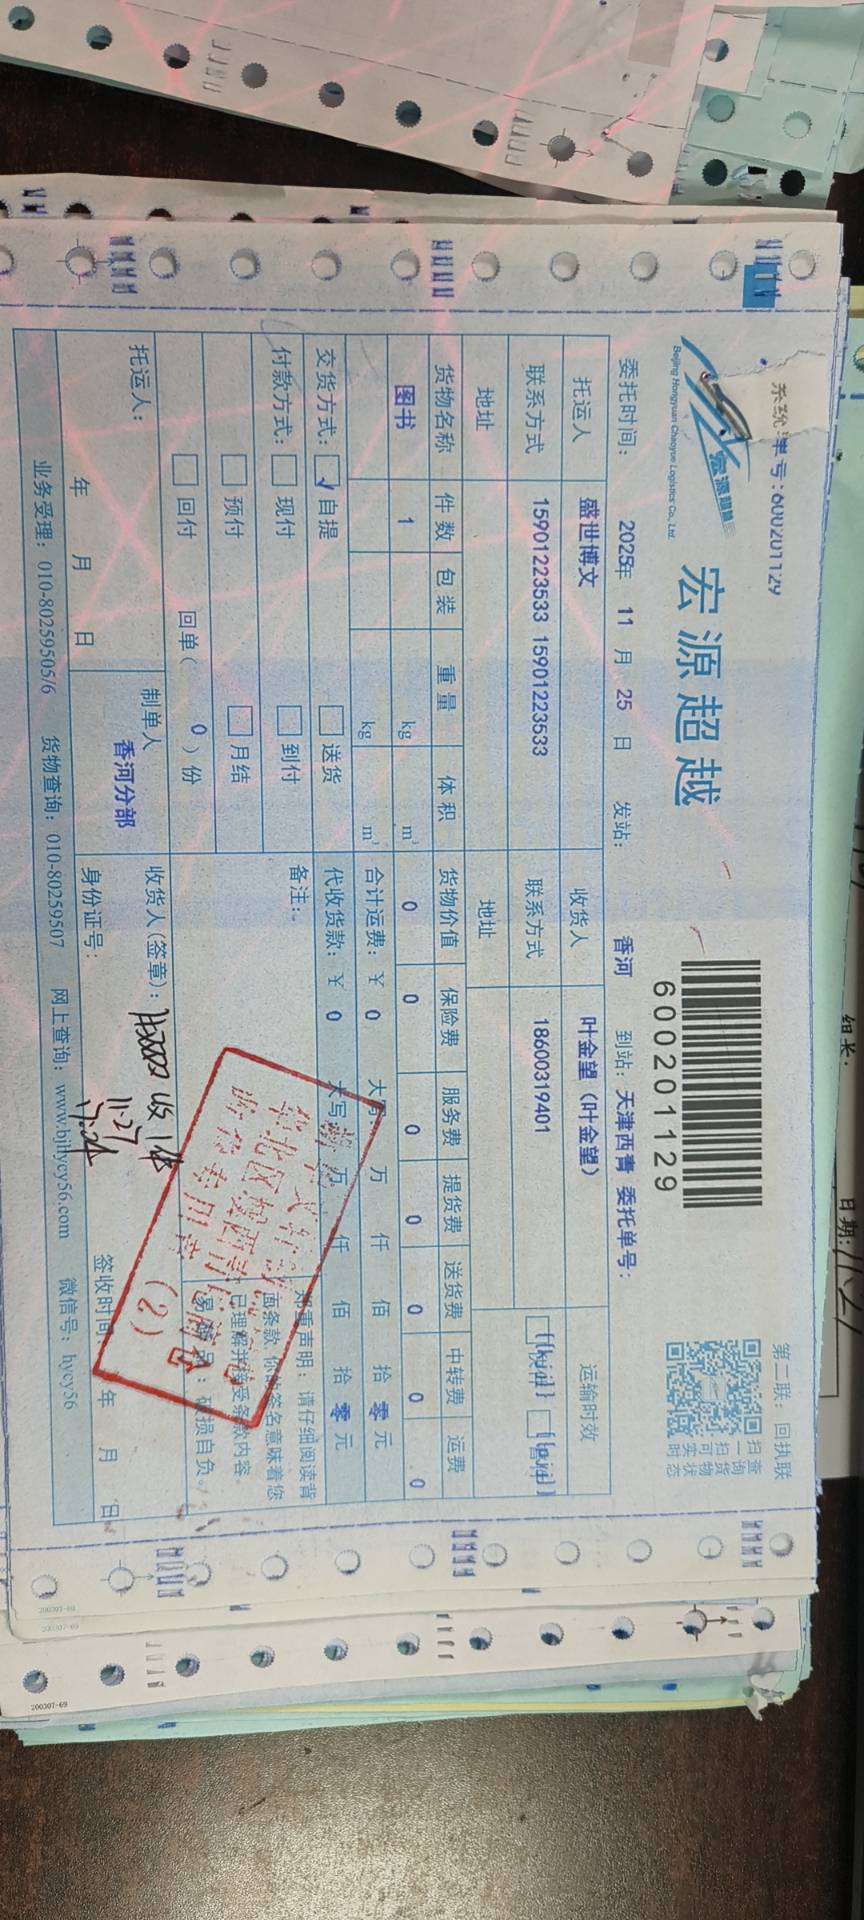 系统单号:600201129
第二联：回执联
宏源超越
Beijing Hongyuan Chaoyue Logistics Co., Ltd.
宏源超越
600201129
扫查
一询
扫货
可物
实状
时态
委托时间： 2025年 11 月 25 日 发站： 香河 到站：天津西青 委托单号：
托运人 盛世博文 收货人 叶金望（叶金望） 运输时效
联系方式 15901223533 15901223533 联系方式 18600319401
地址 地址
货物名称 件数 包装 重量 体积 货物价值 保险费 服务费 提货费 送货费 中转费 运费
图书 1 kg m³ 0 0 0 0 0 0 0
kg m³ 合计运费：￥ 0 大写： 万 仟 佰 拾 零 元
交货方式： ✓ 自提 送货 代收货款：￥ 0 大写： 万 仟 佰 拾 零 元
付款方式： 现付 到付 备注：
预付 月结
回付 回单（ 0 ）份
郑重声明：请仔细阅读背
面条款，你的签名意味着您
已理解并接受条款内容。
易碎品：破损自负。
（2）
托运人： 制单人 收货人(签章)：
香河分部 11.27
年 月 日 身份证号： 签收时间 年 月 日
业务受理：010-80259505/6 货物查询：010-80259507 网上查询：www.bjhycy56.com 微信号：hycy56
组长：
日期：11.27
200307-69